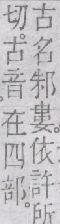 古名邾婁。依許所
切。古音在四部。